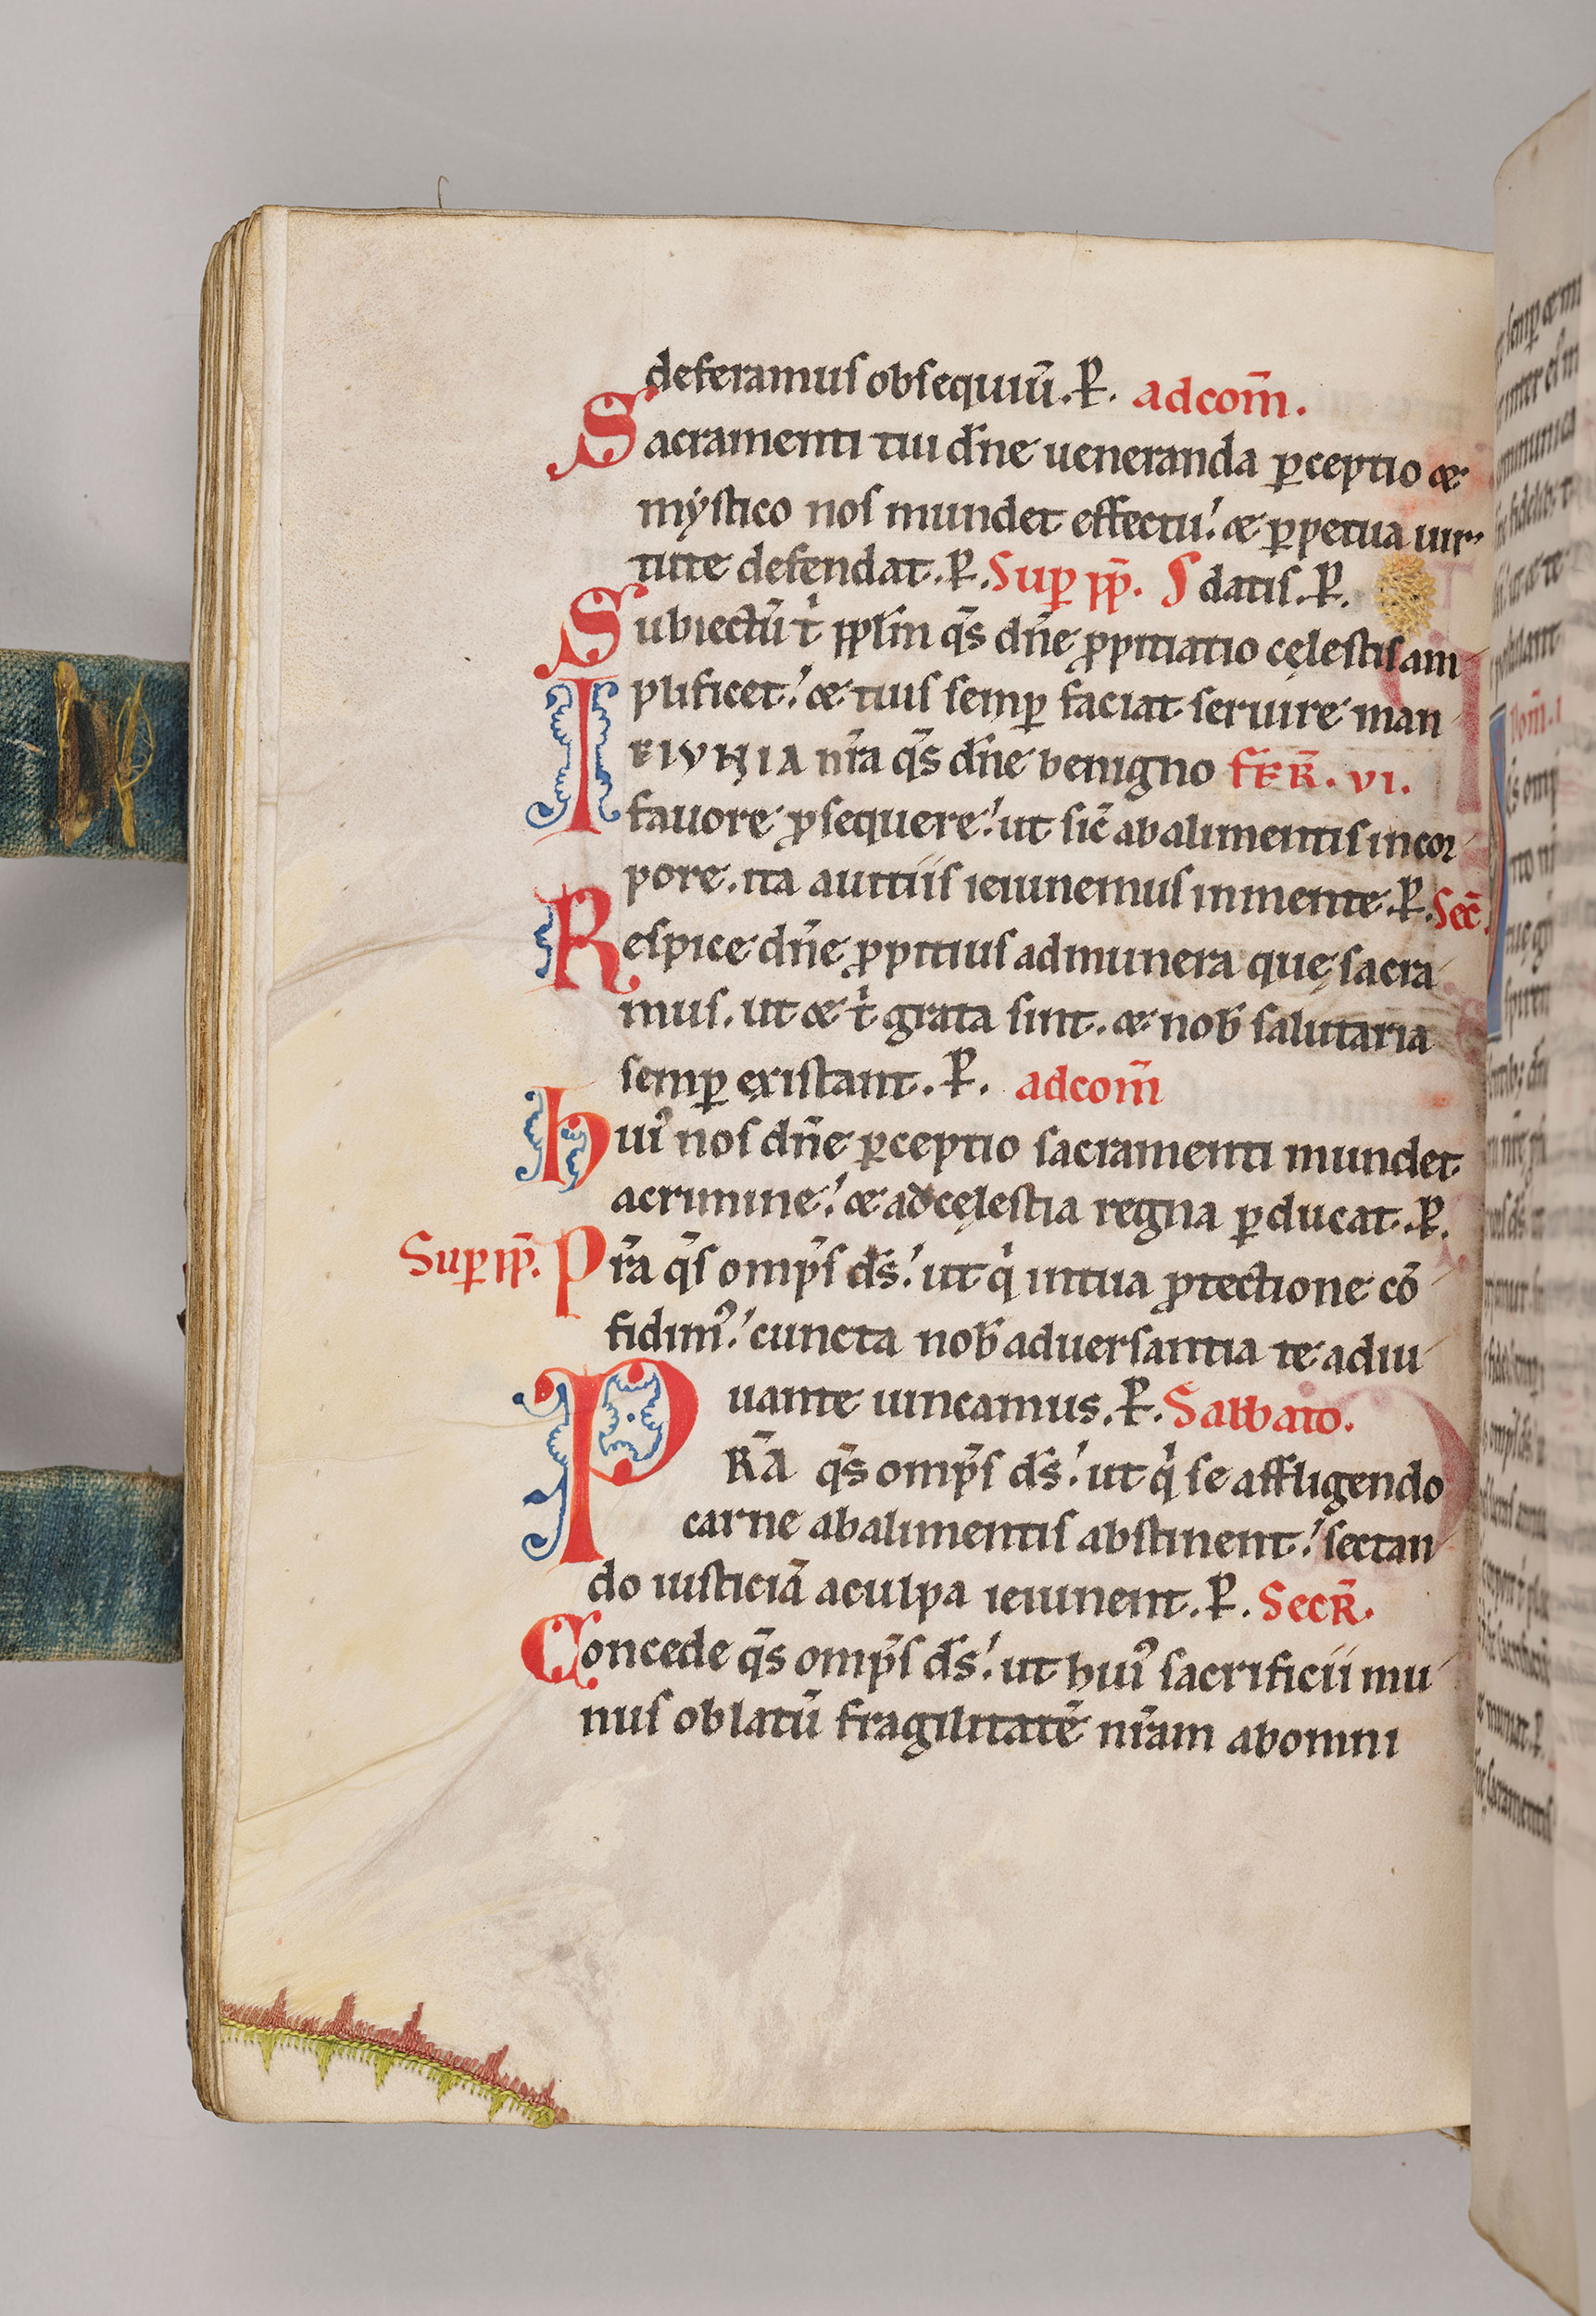 deferamus obsequiū. P̄. ad com̄.
Sacramenti tui dn̄e ueneranda ꝑceptio &
mẏstico nos mundet effectu. & ꝑpetua uir
tute defendat. P̄. Suꝑ pp̄. S datis. P̄.
Subiectū t' ppl̄m qs̄ dn̄e ꝓpitiatio cęlestis am
plificet. & tuis semꝑ faciat seruire man
IEIVNIA nr̄a qs̄ dn̄e benigno FER̄. VI.
fauore ꝓsequere. ut sic̄ ab alimentis in cor
pore. ita a uitiis ieiunemus in mente. P̄. Sec̄.
Respice dn̄e ꝓpitius ad munera quę sacra
mus. ut & t' grata sint. & nob̄ salutaria
semꝑ existant. P̄. ad com̄
huiꝰ nos dn̄e ꝑceptio sacramenti mundet
a crimine. & ad cęlestia regna ꝑducat. P̄.
Suꝑ pp̄. Pr̄a qs̄ omp̄s ds̄. ut q' in tua ꝓtectione cō
fidimꝰ. cuncta nob̄ aduersantia te adiu
uante uincamus. P̄. Sabbato.
PR̄A qs̄ omp̄s ds̄. ut q' se affligendo
carne ab alimentis abstinent. sectan
do iusticiā a culpa ieiunent. P̄. Secr̄.
Concede qs̄ omp̄s ds̄. ut huiꝰ sacrificii mu
nus oblatū fragilitatē nr̄am ab omni